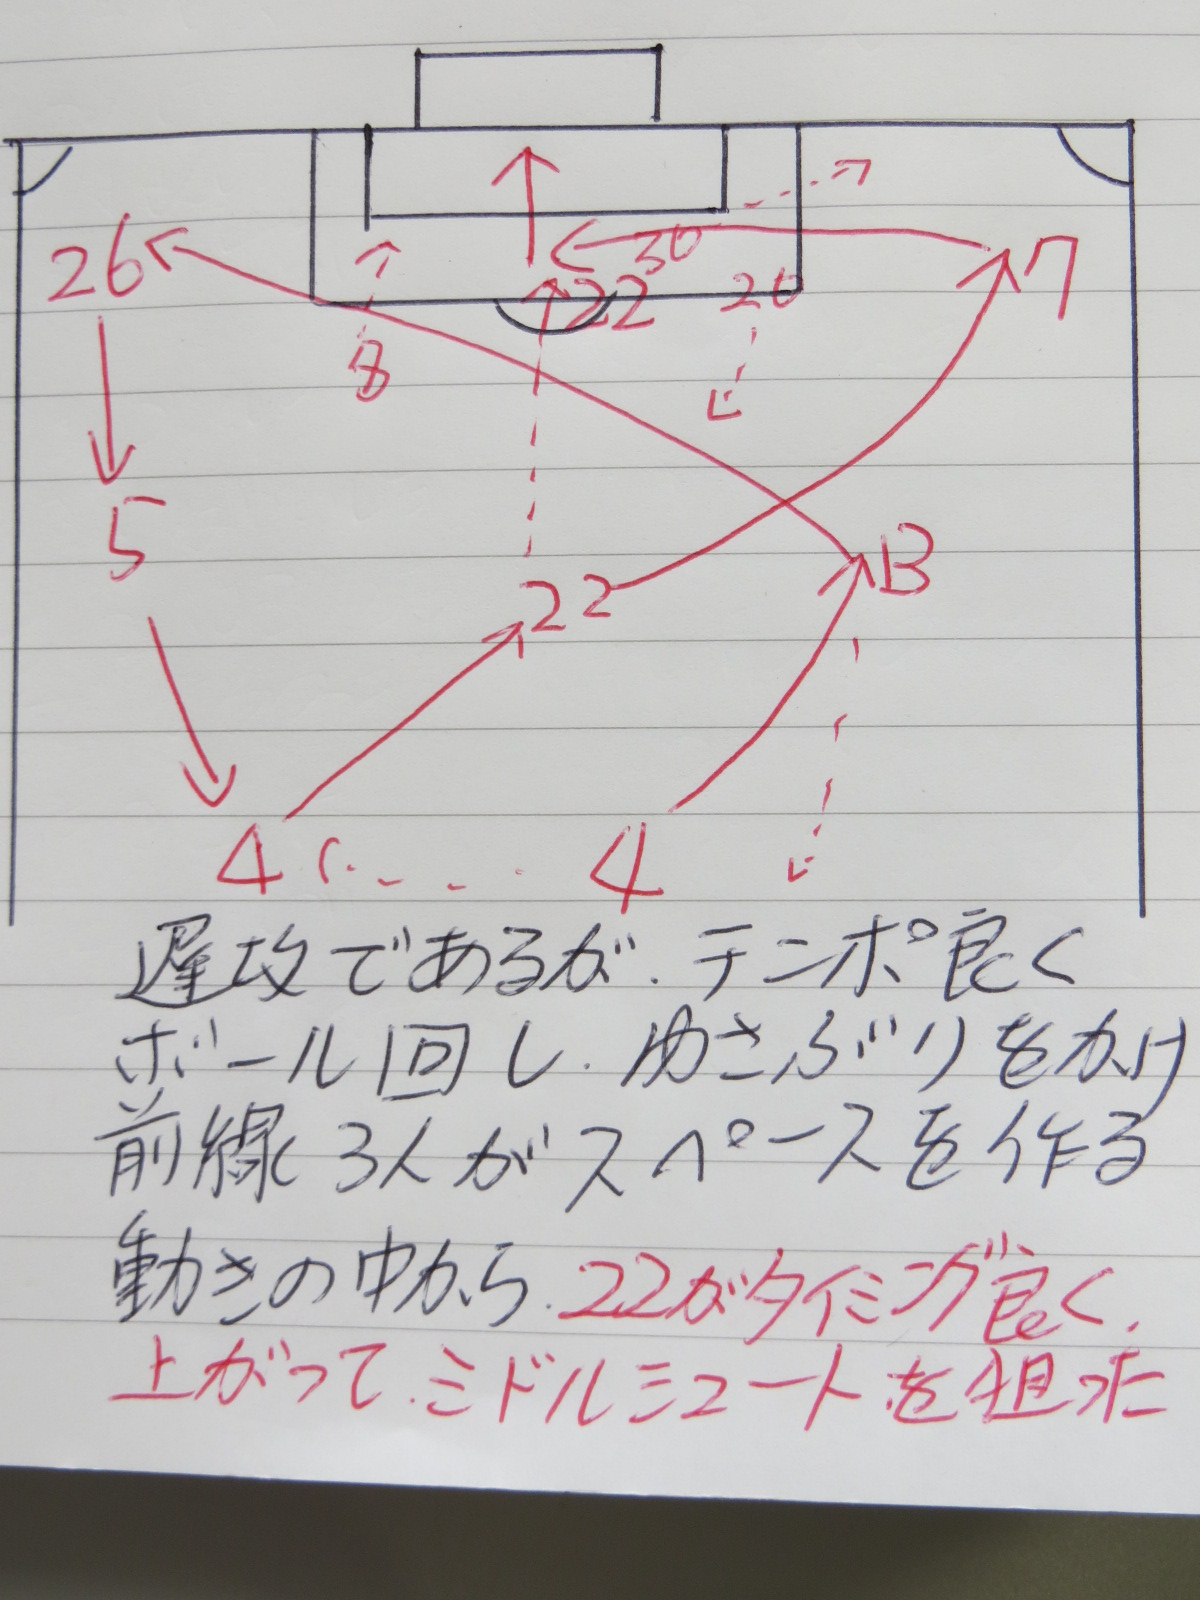 26
30
7
22
20
8
5
22
13
4
4
遅攻であるが、テンポ良く
ボール回し、ゆさぶりをかけ
前線3人がスペースを作る
動きの中から、22がタイミング良く、
上がって、ミドルシュートを狙った